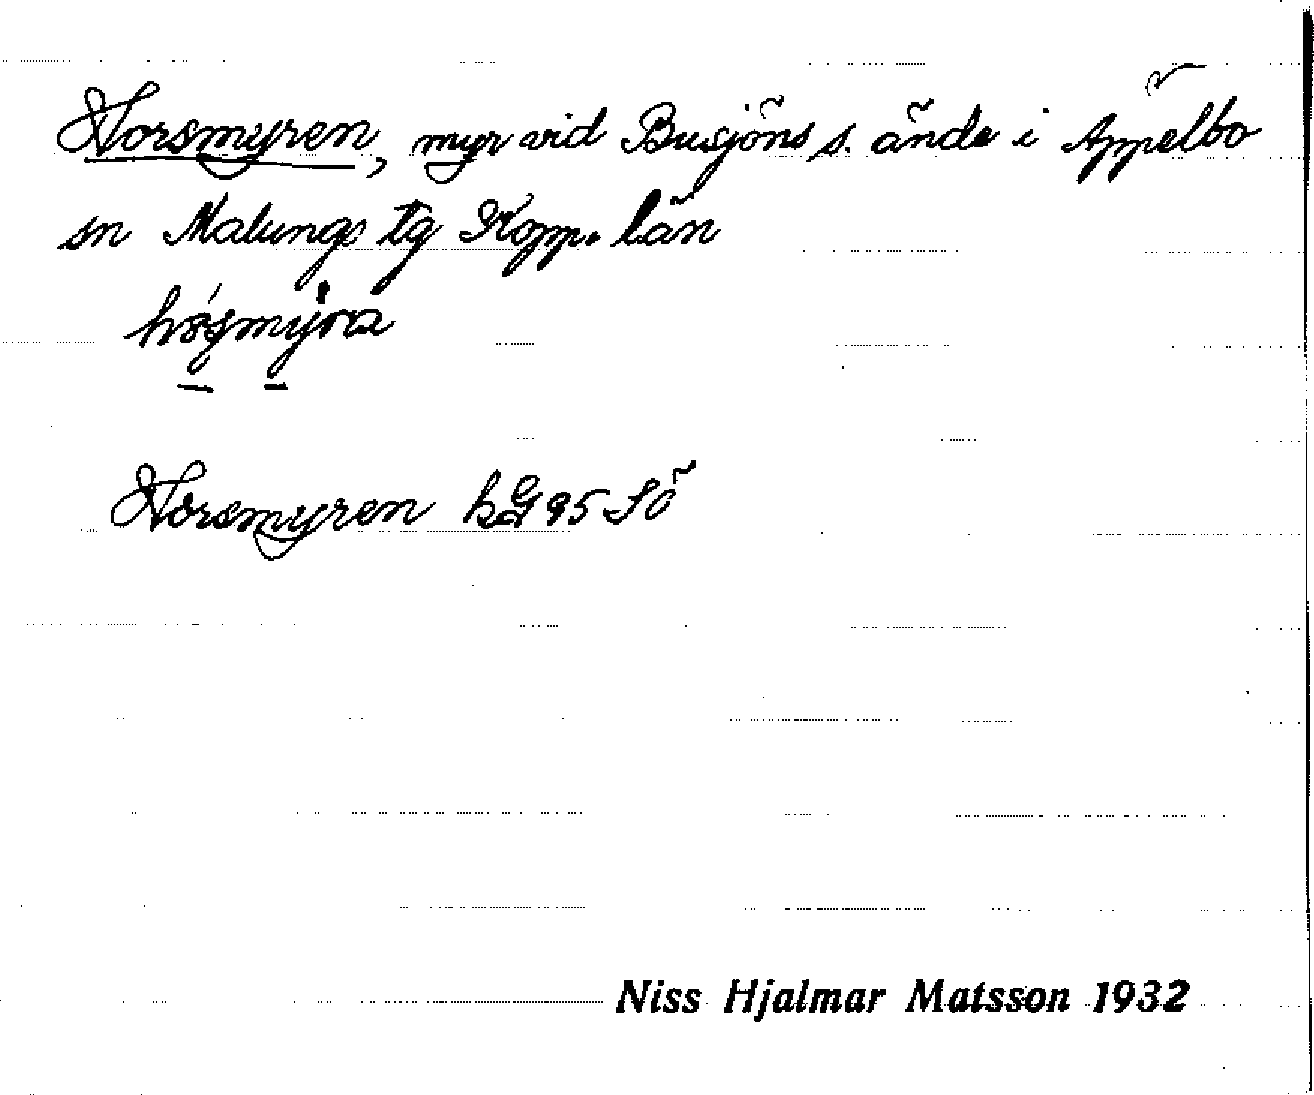 Horsmyren, myr vid Busjöns s. ände i Äppelbo
sn Malungs tg Kopp. län
Horsmyren kG 95 Sö
Niss Hjalmar Matsson 1932